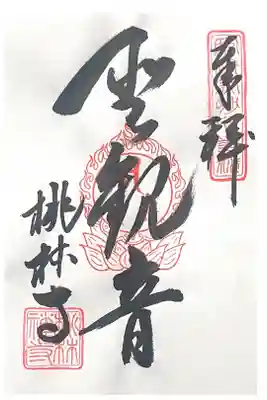 奉拝
聖観音
桃林寺